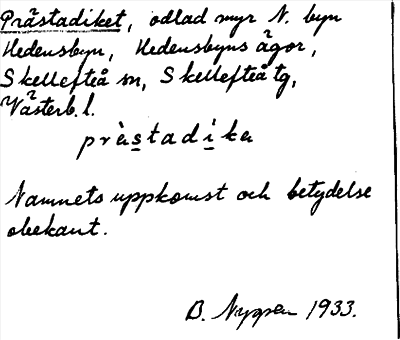 Prästadiket, odlad myr N. byn
Hedensbyn, Hedensbyns ägor,
Skellefteå sn, Skellefteå tg,
Västerb. l.
pràstadika
Namnets uppkomst och betydelse
obekant.
B. Nygren 1933.